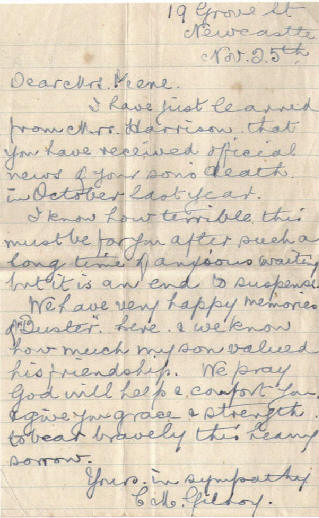 19 Grove St
Newcastle
Nov. 25th
Dear Mrs. Keene.
I have just learned
from Mrs. Harrison, that
you have received official
news of your son's death
in October last year.
I know how terrible this
must be for you after such a
long time of anxious waiting
but it is an end to suspense.
We have very happy memories
of "Buster" here & we know
how much my son valued
his friendship. We pray
God will help & comfort you
& give you grace & strength
to bear bravely this heavy
sorrow.
Yours in sympathy
C. M. Gilroy.